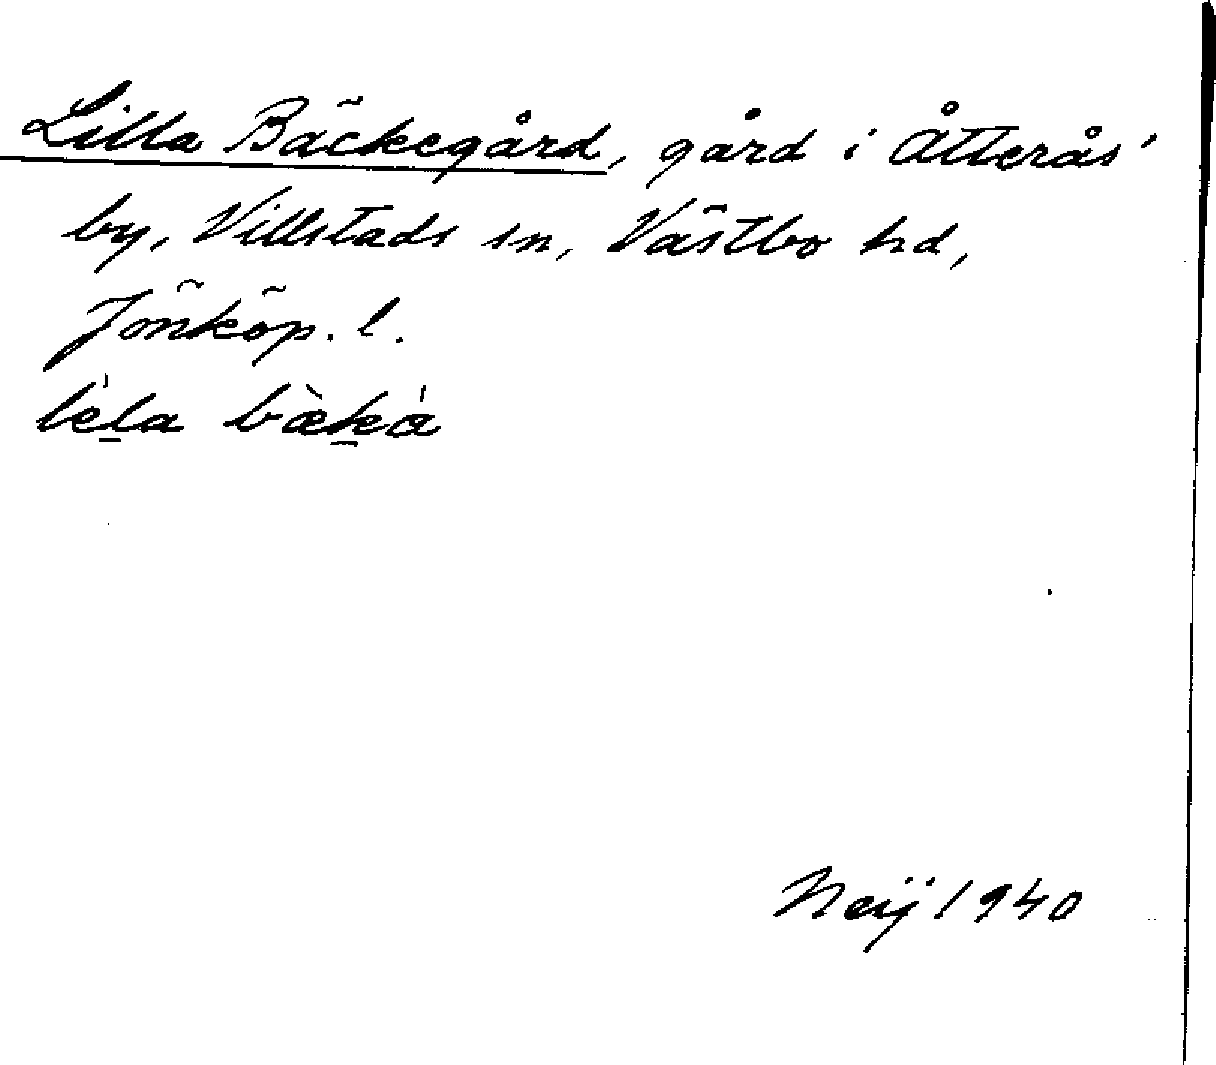 Lilla Bäckegård, gård i Åtterås'
by, Villstads sn, Västbo hd,
Jönköp. l.
lèl̠a bæ̀k̠á
Neij 1940